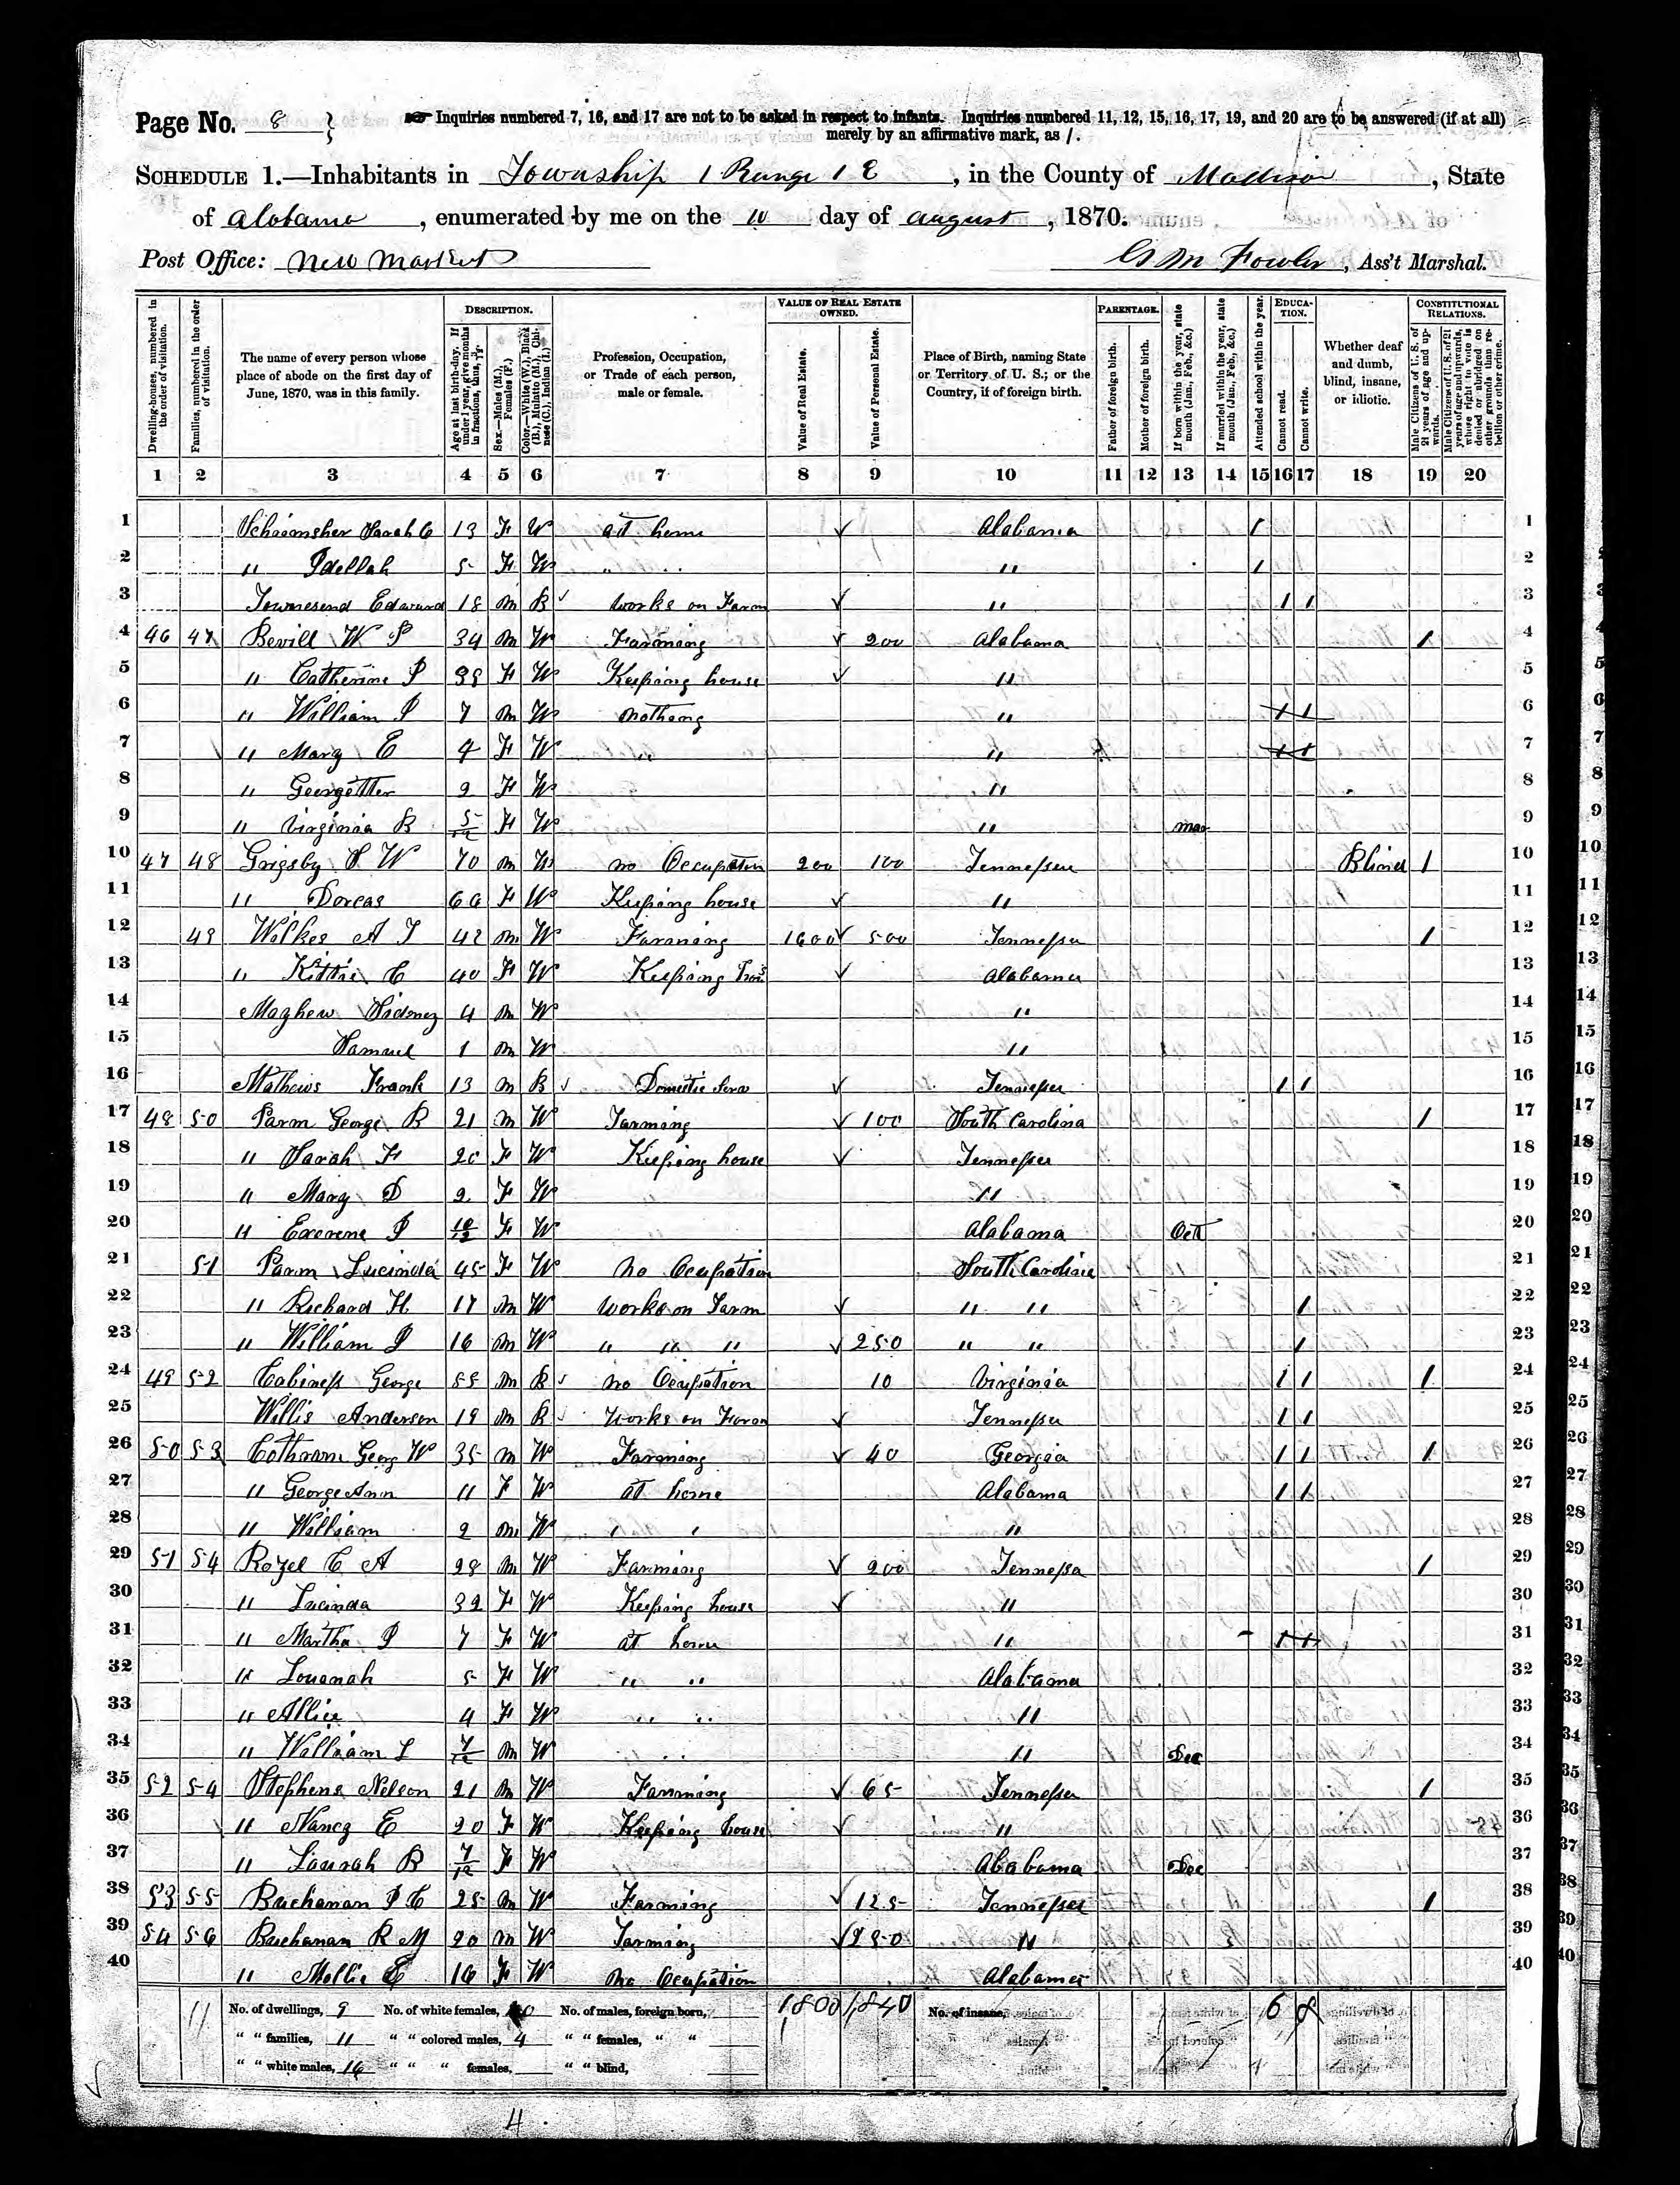 Page No. 8 } Inquiries numbered 7, 16, and 17 are not to be asked in respect to infants. Inquiries numbered 11, 12, 15, 16, 17, 19, and 20 are to be answered (if at all)
merely by an affirmative mark, as /.
SCHEDULE 1.—Inhabitants in Township 1 Range 1 E, in the County of Madison, State
of Alabama, enumerated by me on the 10 day of August, 1870.
Post Office: New Market Fowler, Ass't Marshal.
Dwelling-houses, numbered in the order of visitation.
Families, numbered in the order of visitation.
The name of every person whose place of abode on the first day of June, 1870, was in this family.
DESCRIPTION.
Age at last birth-day. If under 1 year, give months in fractions, thus, 3/12.
Sex.—Males (M.), Females (F.)
Color.—White (W.), Black (B.), Mulatto (M.), Chinese (C.), Indian (I.)
Profession, Occupation, or Trade of each person, male or female.
VALUE OF REAL ESTATE OWNED.
Value of Real Estate.
Value of Personal Estate.
Place of Birth, naming State or Territory of U. S.; or the Country, if of foreign birth.
PARENTAGE.
Father of foreign birth.
Mother of foreign birth.
If born within the year, state month (Jan., Feb., &c.)
If married within the year, state month (Jan., Feb., &c.)
Attended school within the year.
EDUCATION.
Cannot read.
Cannot write.
Whether deaf and dumb, blind, insane, or idiotic.
CONSTITUTIONAL RELATIONS.
Male Citizens of U. S. of 21 years of age and upwards.
Male Citizens of U. S. of 21 years of age and upwards, whose right to vote is denied or abridged on other grounds than rebellion or other crime.
1 2 3 4 5 6 7 8 9 10 11 12 13 14 15 16 17 18 19 20
1 Sarah C 13 F W at home Alabama / 1
2 " Idellah 5 F W " " " / 2
3 Townesend Edward 18 M B works on Farm " / / 3
4 46 47 Bevill W P 34 M W Farming 200 Alabama / 4
5 " Catherine P 38 F W Keeping house " 5
6 " William P 7 M W nothing " 6
7 " Mary E 4 F W " " 7
8 " 2 F W " 8
9 " Virginia B 5/12 F W " Mar 9
10 47 48 Grigsby S W 70 M W no Occupation 200 100 Tennessee Blind / 10
11 " Dorcas 66 F W Keeping house " 11
12 49 Wilkes A J 42 M W Farming 1600 500 Tennessee / 12
13 " Kittie C 40 F W Keeping Alabama 13
14 Maghew Sidney 4 M W " 14
15 Samuel 1 M W " 15
16 Mathews Frank 13 M B Domestic Serv Tennessee / / 16
17 48 50 Parm George B 21 M W Farming 100 South Carolina / 17
18 " Sarah F 20 F W Keeping house Tennessee 18
19 " Mary D 2 F W " 19
20 " P 10/12 F W Alabama Oct 20
21 51 Parm Lucinda 45 F W No Ocupation South Carolina 21
22 " Richard H. 17 M W works on Farm " " / 22
23 " William P 16 M W " " " 250 " " / 23
24 49 52 Cabiness George 88 M B no Ocupation 10 Virginia / / / 24
25 Willis Anderson 19 M B works on Farm Tennessee / / 25
26 50 53 Cothram Georg W 35 M W Farming 40 Georgia / / / 26
27 " George Ann 11 F W at home Alabama / / 27
28 " William 2 M W " " " 28
29 51 54 Rozel C A 28 M W Farming 200 Tennessa / 29
30 " Lucinda 32 F W Keeping house " 30
31 " Martha P 7 F W at home " 31
32 " Louanah 5 F W " " Alabama 32
33 " Allice 4 F W " " " 33
34 " William L 7/12 M W " " " Dec 34
35 52 54 Stephens Nelson 21 M W Farming 65 Tennessee / 35
36 " Nancy E 20 F W Keeping house " 36
37 " Laurah B 7/12 F W Alabama Dec 37
38 53 55 Buchanan P C 25 M W Farming 125 Tennessee / 38
39 54 56 Buchanan R M 20 M W Farming 250 " 39
40 " Mollie E 16 F W No Ocupation Alabama 40
11 No. of dwellings, 9 No. of white females, 20 No. of males, foreign born, 1800 1840 No. of insane, 6 8
" " families, 11 " " colored males, 4 " " females, " "
" " white males, 16 " " " females, " " blind,
4